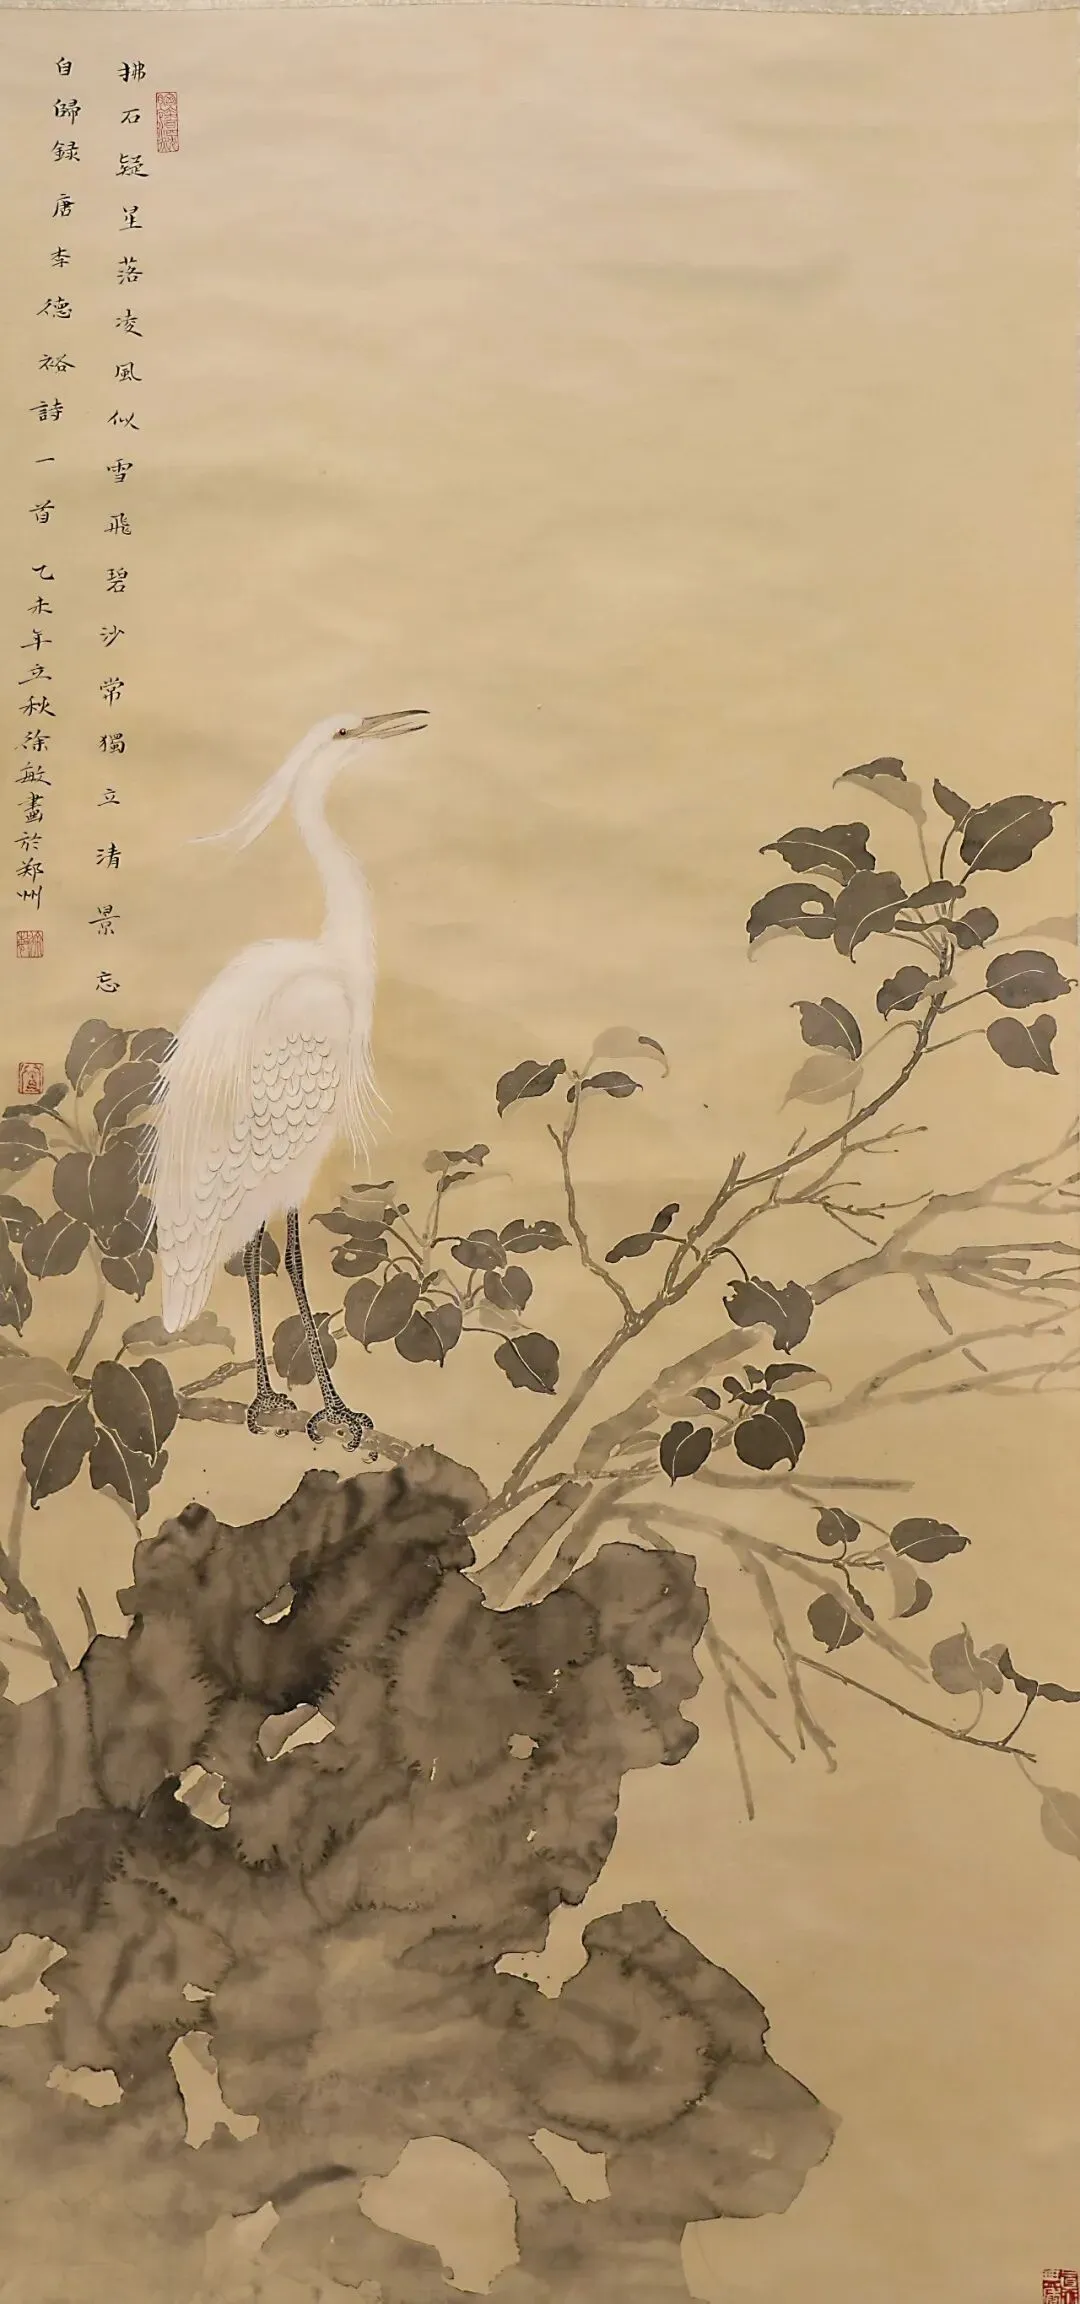 拂石疑星落凌風似雪飛碧沙常獨立清景忘
自歸録唐李德裕詩一首乙未年立秋徐敏畫於郑州